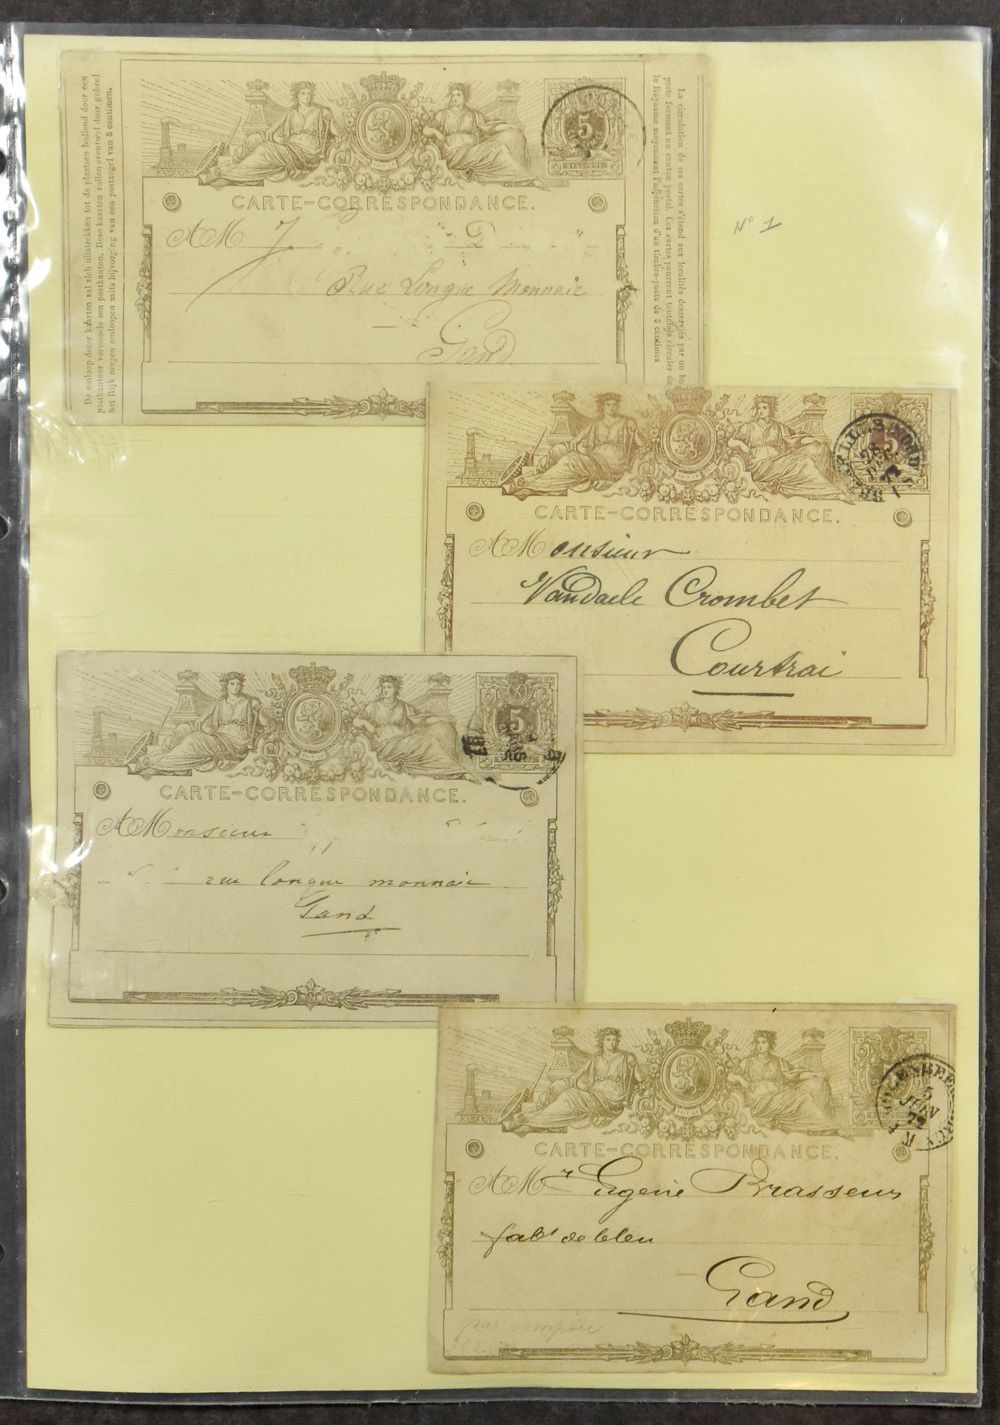 De omloop dezer kaarten zal zich uitstrekken tot de plaatsen bediend door een
postkantoor vormende een postkanton. Deze kaarten zullen evenwel door geheel
het Rijk mogen omloopen mits bijvoeging van een postzegel van 5 centimen.
5
CARTE-CORRESPONDANCE.
A M
Rue Longue Monnaie
Gand
La circulation de ces cartes s'étend aux localités desservies par un
poste formant un canton postal. Ces cartes pourront toutefois circuler
le Royaume moyennant l'adjonction d'un timbre-poste de 5 centimes
N° 1
5
NORD
28
CARTE-CORRESPONDANCE.
A Monsieur
Vandaele Crombet
Courtrai
5
CARTE-CORRESPONDANCE.
A Monsieur
rue longue monnaie
Gand
5
JUIN
CARTE-CORRESPONDANCE.
A Mr Eugène Brasseur
fabt de bleu
Gand